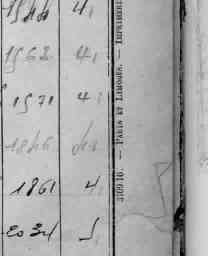 1944 4,
1962 4,
1971 4,
1846
1861 4,
2034
3109.10. — PARIS ET LIMOGES. — IMPRIMERI